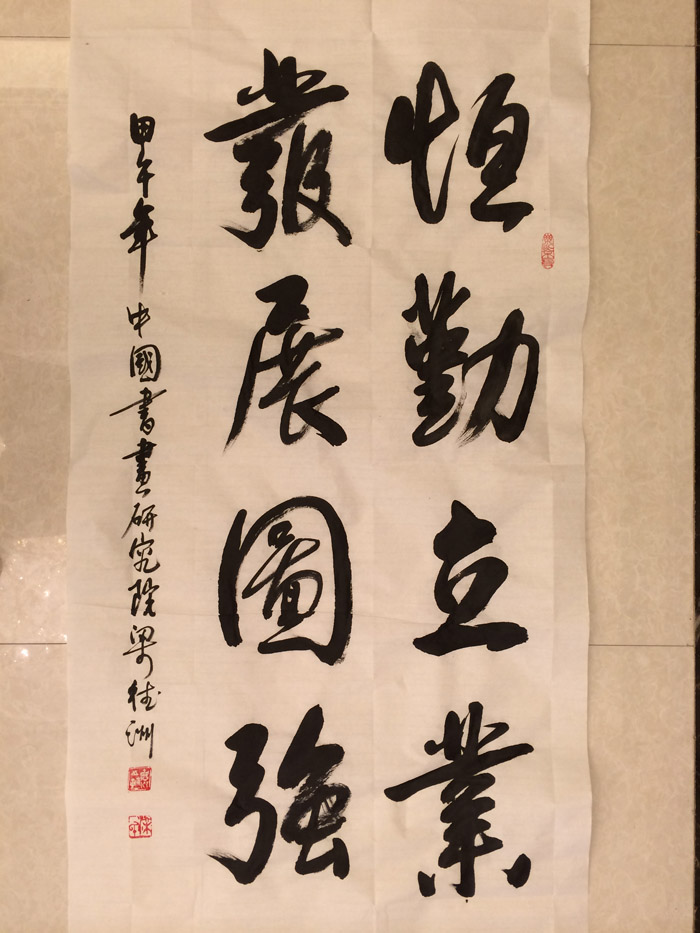 恒勤立业
發展圖強
甲午年 中國書畫研究院梁德洲